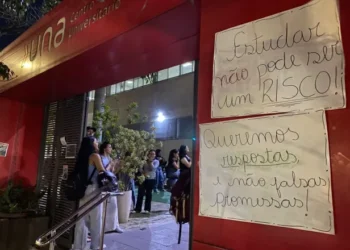 una
Centro
universitário
Estudar
não pode ser
um RISCO!
Queremos
respostas
e não falsas
promessas!